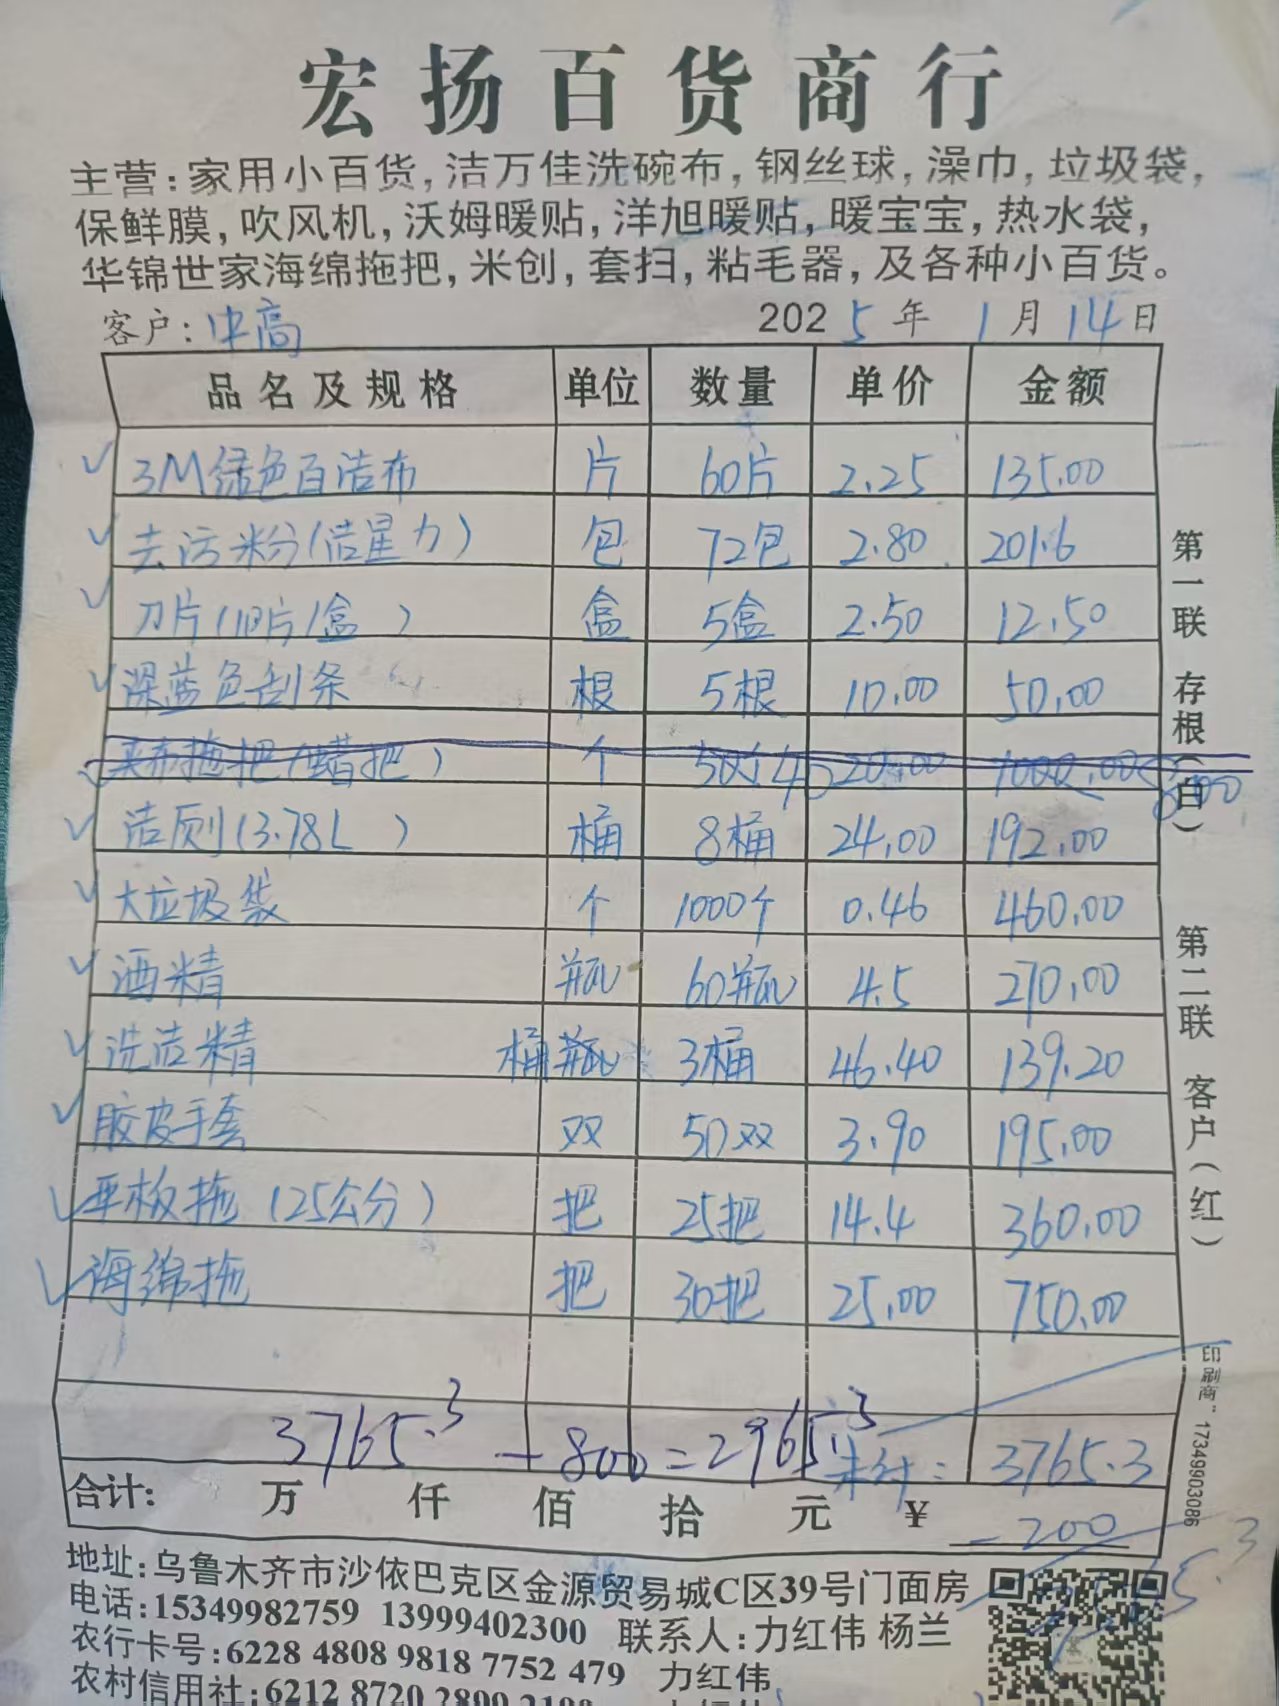 宏扬百货商行
主营:家用小百货,洁万佳洗碗布,钢丝球,澡巾,垃圾袋,
保鲜膜,吹风机,沃姆暖贴,洋旭暖贴,暖宝宝,热水袋,
华锦世家海绵拖把,米创,套扫,粘毛器,及各种小百货。
客户:中高 2025年1月14日
品名及规格 单位 数量 单价 金额
3M绿色百洁布 片 60片 2.25 135.00
去污粉(洁星力) 包 72包 2.80 201.6
刀片(10片/盒) 盒 5盒 2.50 12.50
深蓝色刮条 根 5根 10.00 50.00
夹布拖把(蜡把) 个 50 40 20.00 1000.00 800
洁厕(3.78L) 桶 8桶 24.00 192.00
大垃圾袋 个 1000个 0.46 460.00
酒精 瓶 60瓶 4.5 270.00
洗洁精 桶 瓶 3桶 46.40 139.20
胶皮手套 双 50双 3.90 195.00
平板拖(25公分) 把 25把 14.4 360.00
海绵拖 把 30把 25.00 750.00
3765.3 - 800 = 2965.3 未付: 3765.3
合计: 万 仟 佰 拾 元 ¥
- 200
地址:乌鲁木齐市沙依巴克区金源贸易城C区39号门面房
电话:15349982759 13999402300 联系人:力红伟 杨兰
农行卡号:6228 4808 9818 7752 479 力红伟
农村信用社:6212 8720
第一联 存根(白) 第二联 客户(红)
印刷商:17349903086